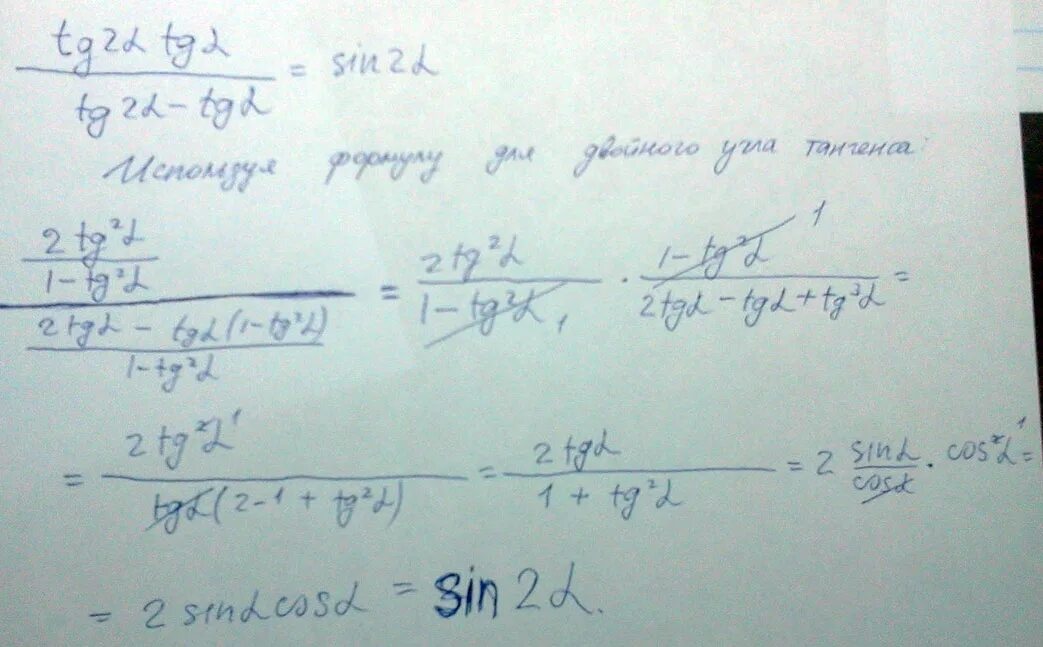 tg2α tgα / tg2α − tgα = sin2α
Используя формулу для двойного угла тангенса:
2tg²α / 1−tg²α / 2tgα − tgα(1−tg²α) / 1−tg²α = 2tg²α / 1−tg²α 1 · 1−tg²α 1 / 2tgα − tgα + tg³α =
= 2tg²α 1 / tgα(2−1+tg²α) = 2tgα / 1+tg²α = 2 sinα / cosα · cos²α 1 =
= 2 sinα cosα = sin 2α.